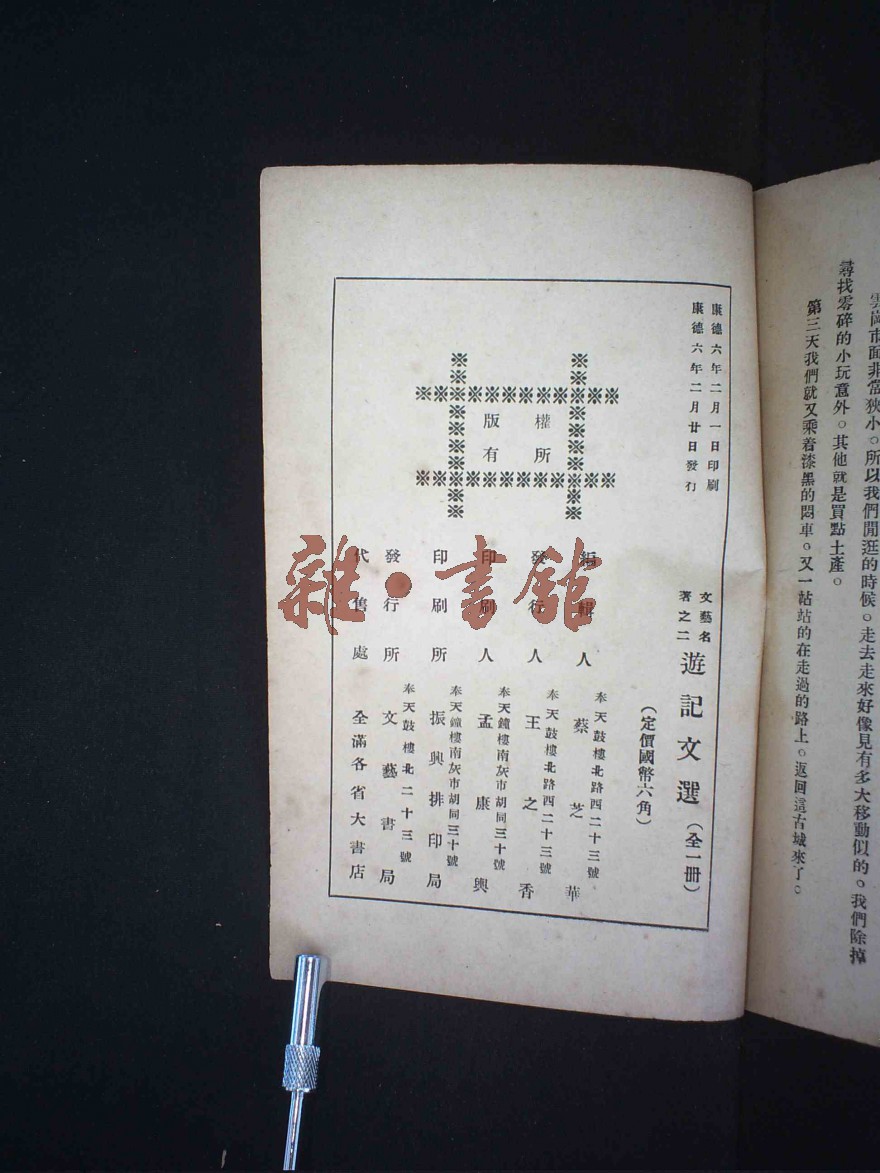 雲崗市面非常狹小。所以我們閒逛的時候。走去走來好像見有多大移動似的。我們除掉
尋找零碎的小玩意外。其他就是買點土產。
第三天我們就又乘着漆黑的悶車。又一帖站的在走過的路上。返回這古城來了。
康德六年二月一日印刷
康德六年二月廿日發行
權所
版有
文藝名
著之二
遊記文選（全一册）
（定價國幣六角）
編輯人
奉天鼓樓北路西二十三號
蔡芝華
發行人
奉天鼓樓北路西二十三號
王之香
印刷人
奉天鐘樓南灰市胡同三十號
孟康興
印刷所
奉天鐘樓南灰市胡同三十號
振興排印局
發行所
奉天鼓樓北二十三號
文藝書局
代售處
全滿各省大書店
雜·書館